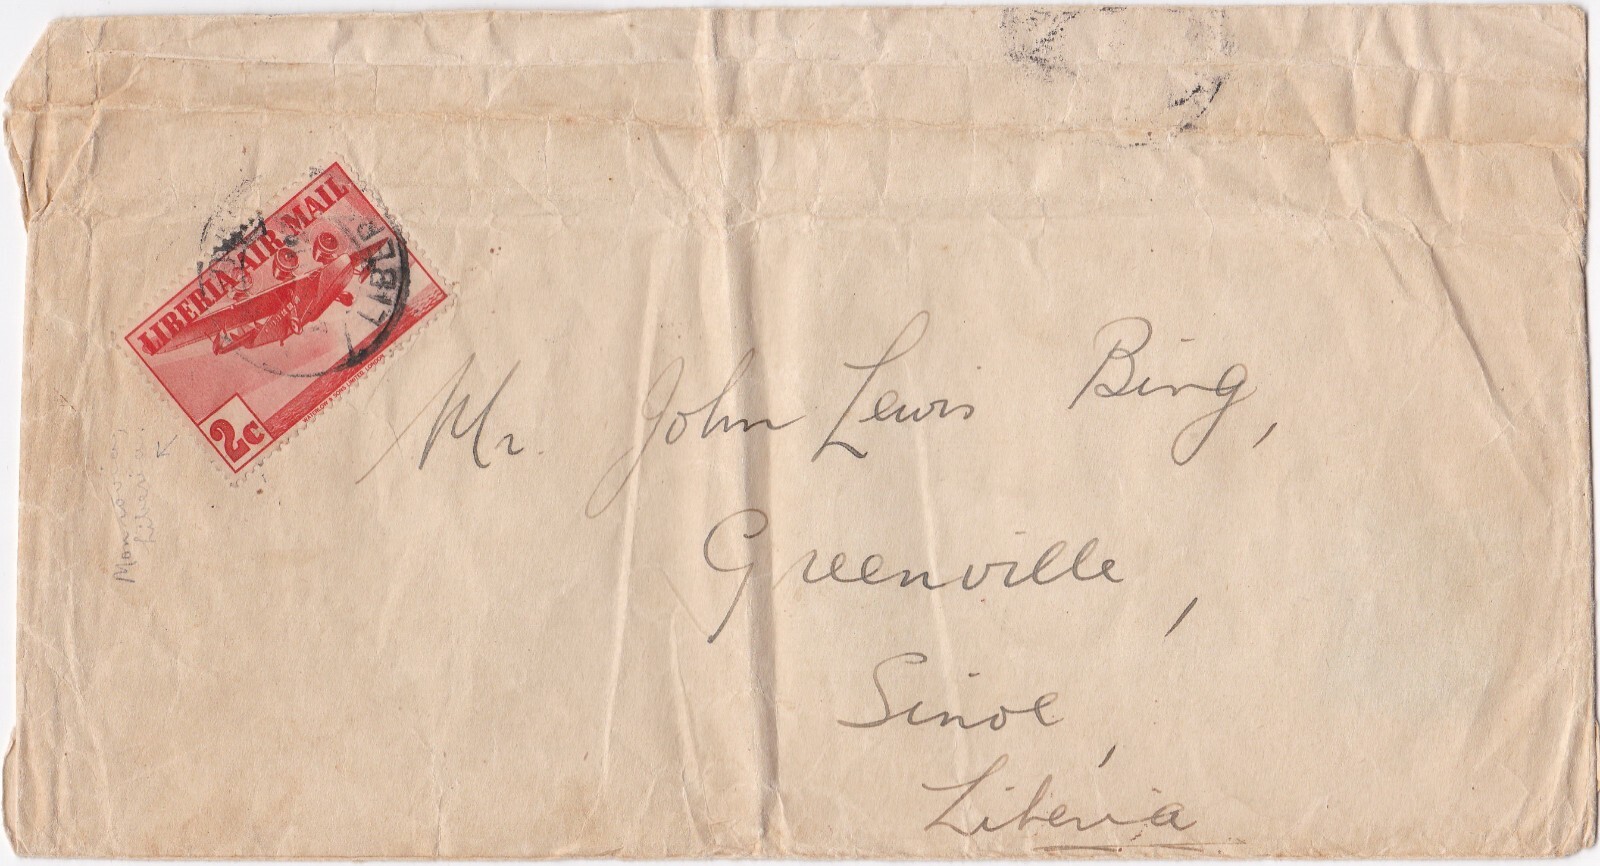 LIBERIA AIR MAIL
2c
WATERLOW & SONS LIMITED, LONDON.
LIBER
Monrovia,
Liberia.
Mr. John Lewis Bing,
Greenville,
Sinoe,
Liberia